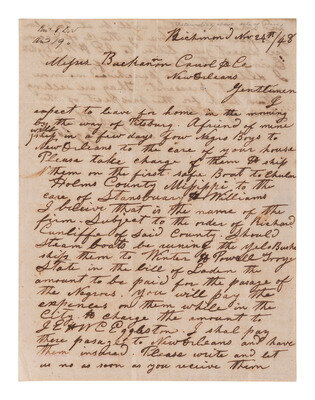 Richmond Nov 24th /48
Messrs Buchanon Carrol & Co
New Orleans
Gentlemen
I
expect to leave for home in the morning
by the way of Pitsburg. A friend of mine
will
ship in a few days four Negro Boys to
New Orleans to the care of your house
Please take charge of them & ship
them on the first safe Boat to Chula
Holms County Missippi to the
care of Stansbury & Williams
I believe that is the name of the
firm. Subject to the order of Richard
Cunliffe of Said County Should
Steam boats be runing the Yalo Busha
ship them to Winter & Powell Troy
State in the bill of Laden the
amount to be paid for the pasage of
the Negroes. You will pay the
expences on them while in the
City & charge the amount to
J E & W C Eggleston. I shal pay
there pasage to New Orleans and have
them insured Please write and let
us no as soon as you receive them